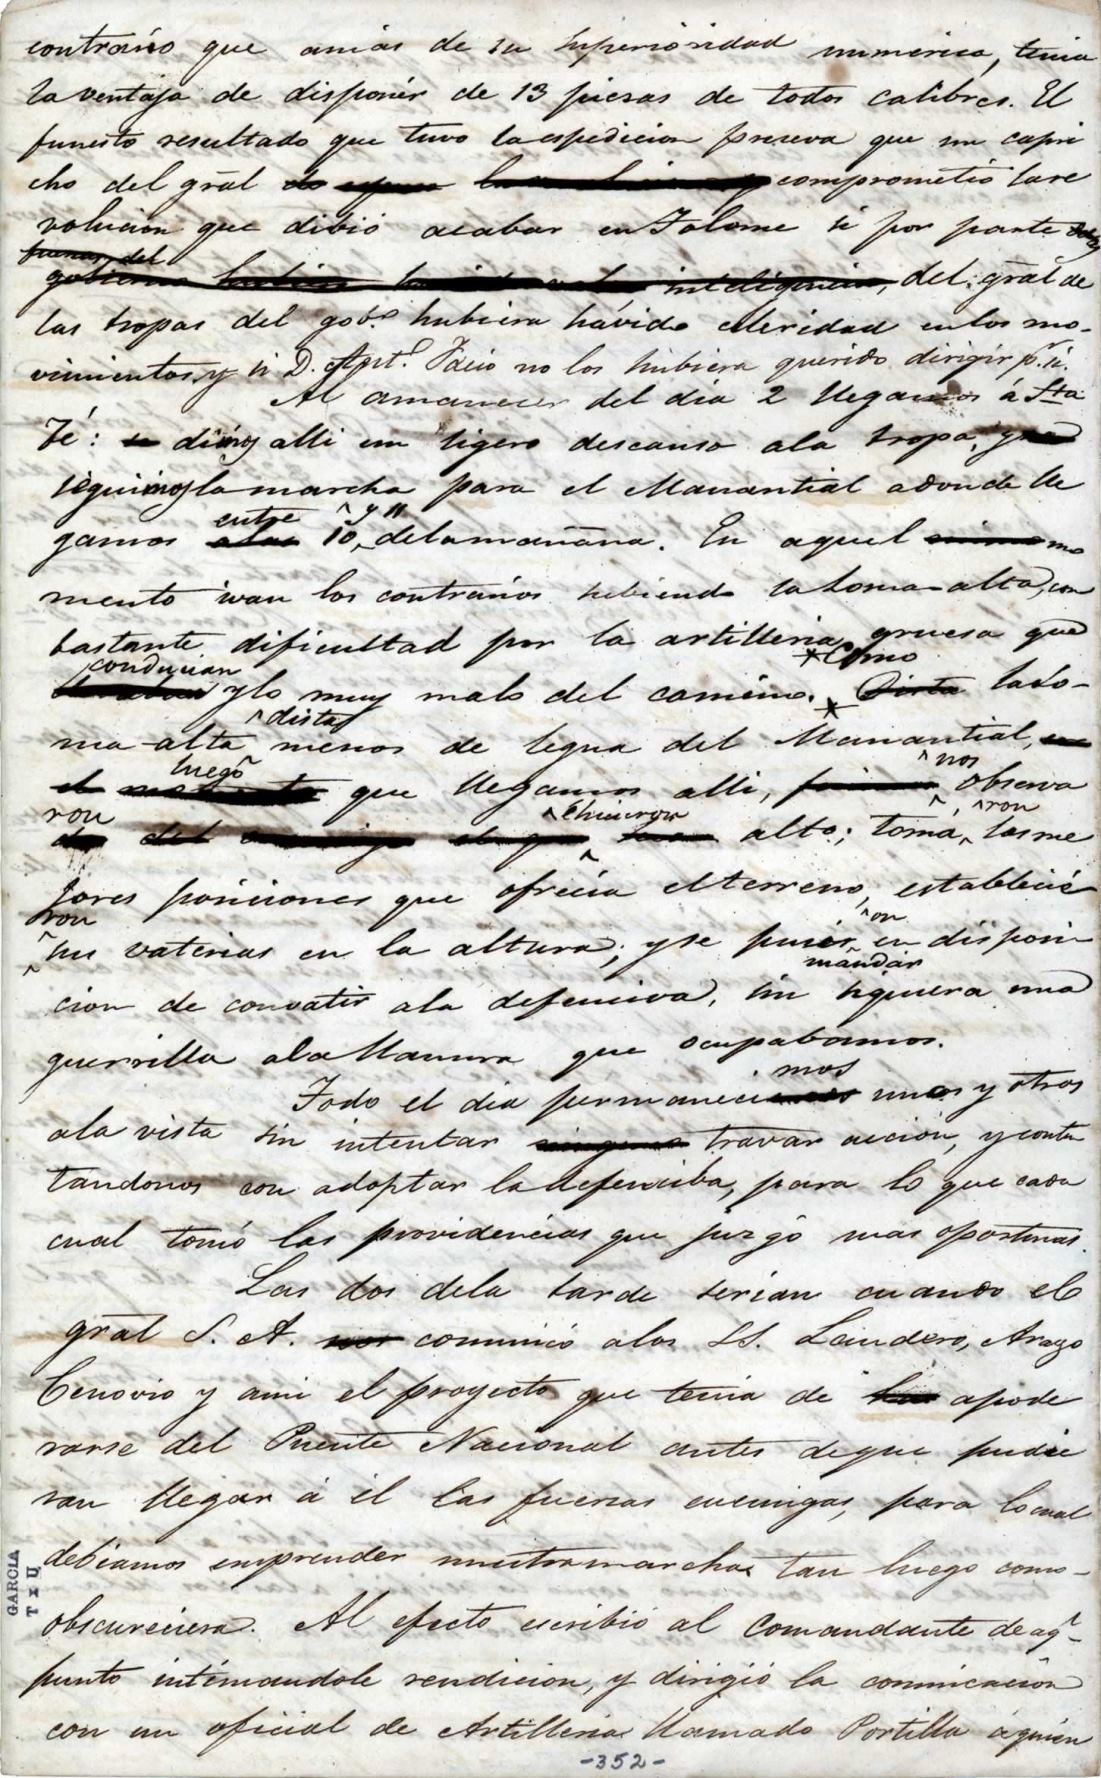 contrario que amas de su superioridad numerica, tenia
la ventaja de disponér de 13 piesas de todos calibres. El
funesto resultado que tuvo la espedicion prueva que un capri
cho del gral comprometió la re
volucion que dibió acabar en Tolome si por parte
fuerzas del
gobierno hubiera inteligencia, del gral de
las tropas del gobo. hubiera hávido celeridad en los mo-
vimientos, y si D. Anto. Facio no los hubiera querido dirigir pr. si.
Al amanecer del dia 2 llegamos á Sta
Fé: dimos alli un ligero descanso ala tropa, y
seguimos la marcha para el Manantial adonde lle
entre y 11
gamos alas 10, dela mañana. En aquel mo
mento ivan los contrarios subiendo la Loma-alta, con
bastante dificultad por la artilleria gruesa que
conducian * Como
y lo muy malo del camino. * Dista la Lo-
dista
ma-alta menos de legua del Manantial, en
luego nos
el que llegamos alli, observa
ron é hicieron ron
del alto; tomá, las me
jores posiciones que ofrecia el terreno, establecié
ron on
sus vaterias en la altura; y se pusier, en disposi
mandar
cion de convatir ala defensiva, sin siquiera una
guerrilla ala llanura que ocupabamos.
mos
Todo el dia permaneci unos y otros
ala vista sin intentar ninguno travar accion, y conten
tandonos con adoptar la defensiba, para lo que cada
cual tomó las providencias que juzgó mas oportunas.
Las dos dela tarde serian cuando el
gral S. A. nos comunicó alos SS. Landero, Arago
Cenovio y ami el proyecto que tenia de apode
rarse del Puente Nacional antes de que pudie
ran llegar á él las fuerzas enemigas, para lo cual
debiamos emprender nuestra marcha tan luego como-
obscureciera. Al efecto escribió al Comandante de aql-
punto intimandole rendicion, y dirigió la comunicacion
con un oficial de Artilleria llamado Portilla á quien
-352-
GARCIA